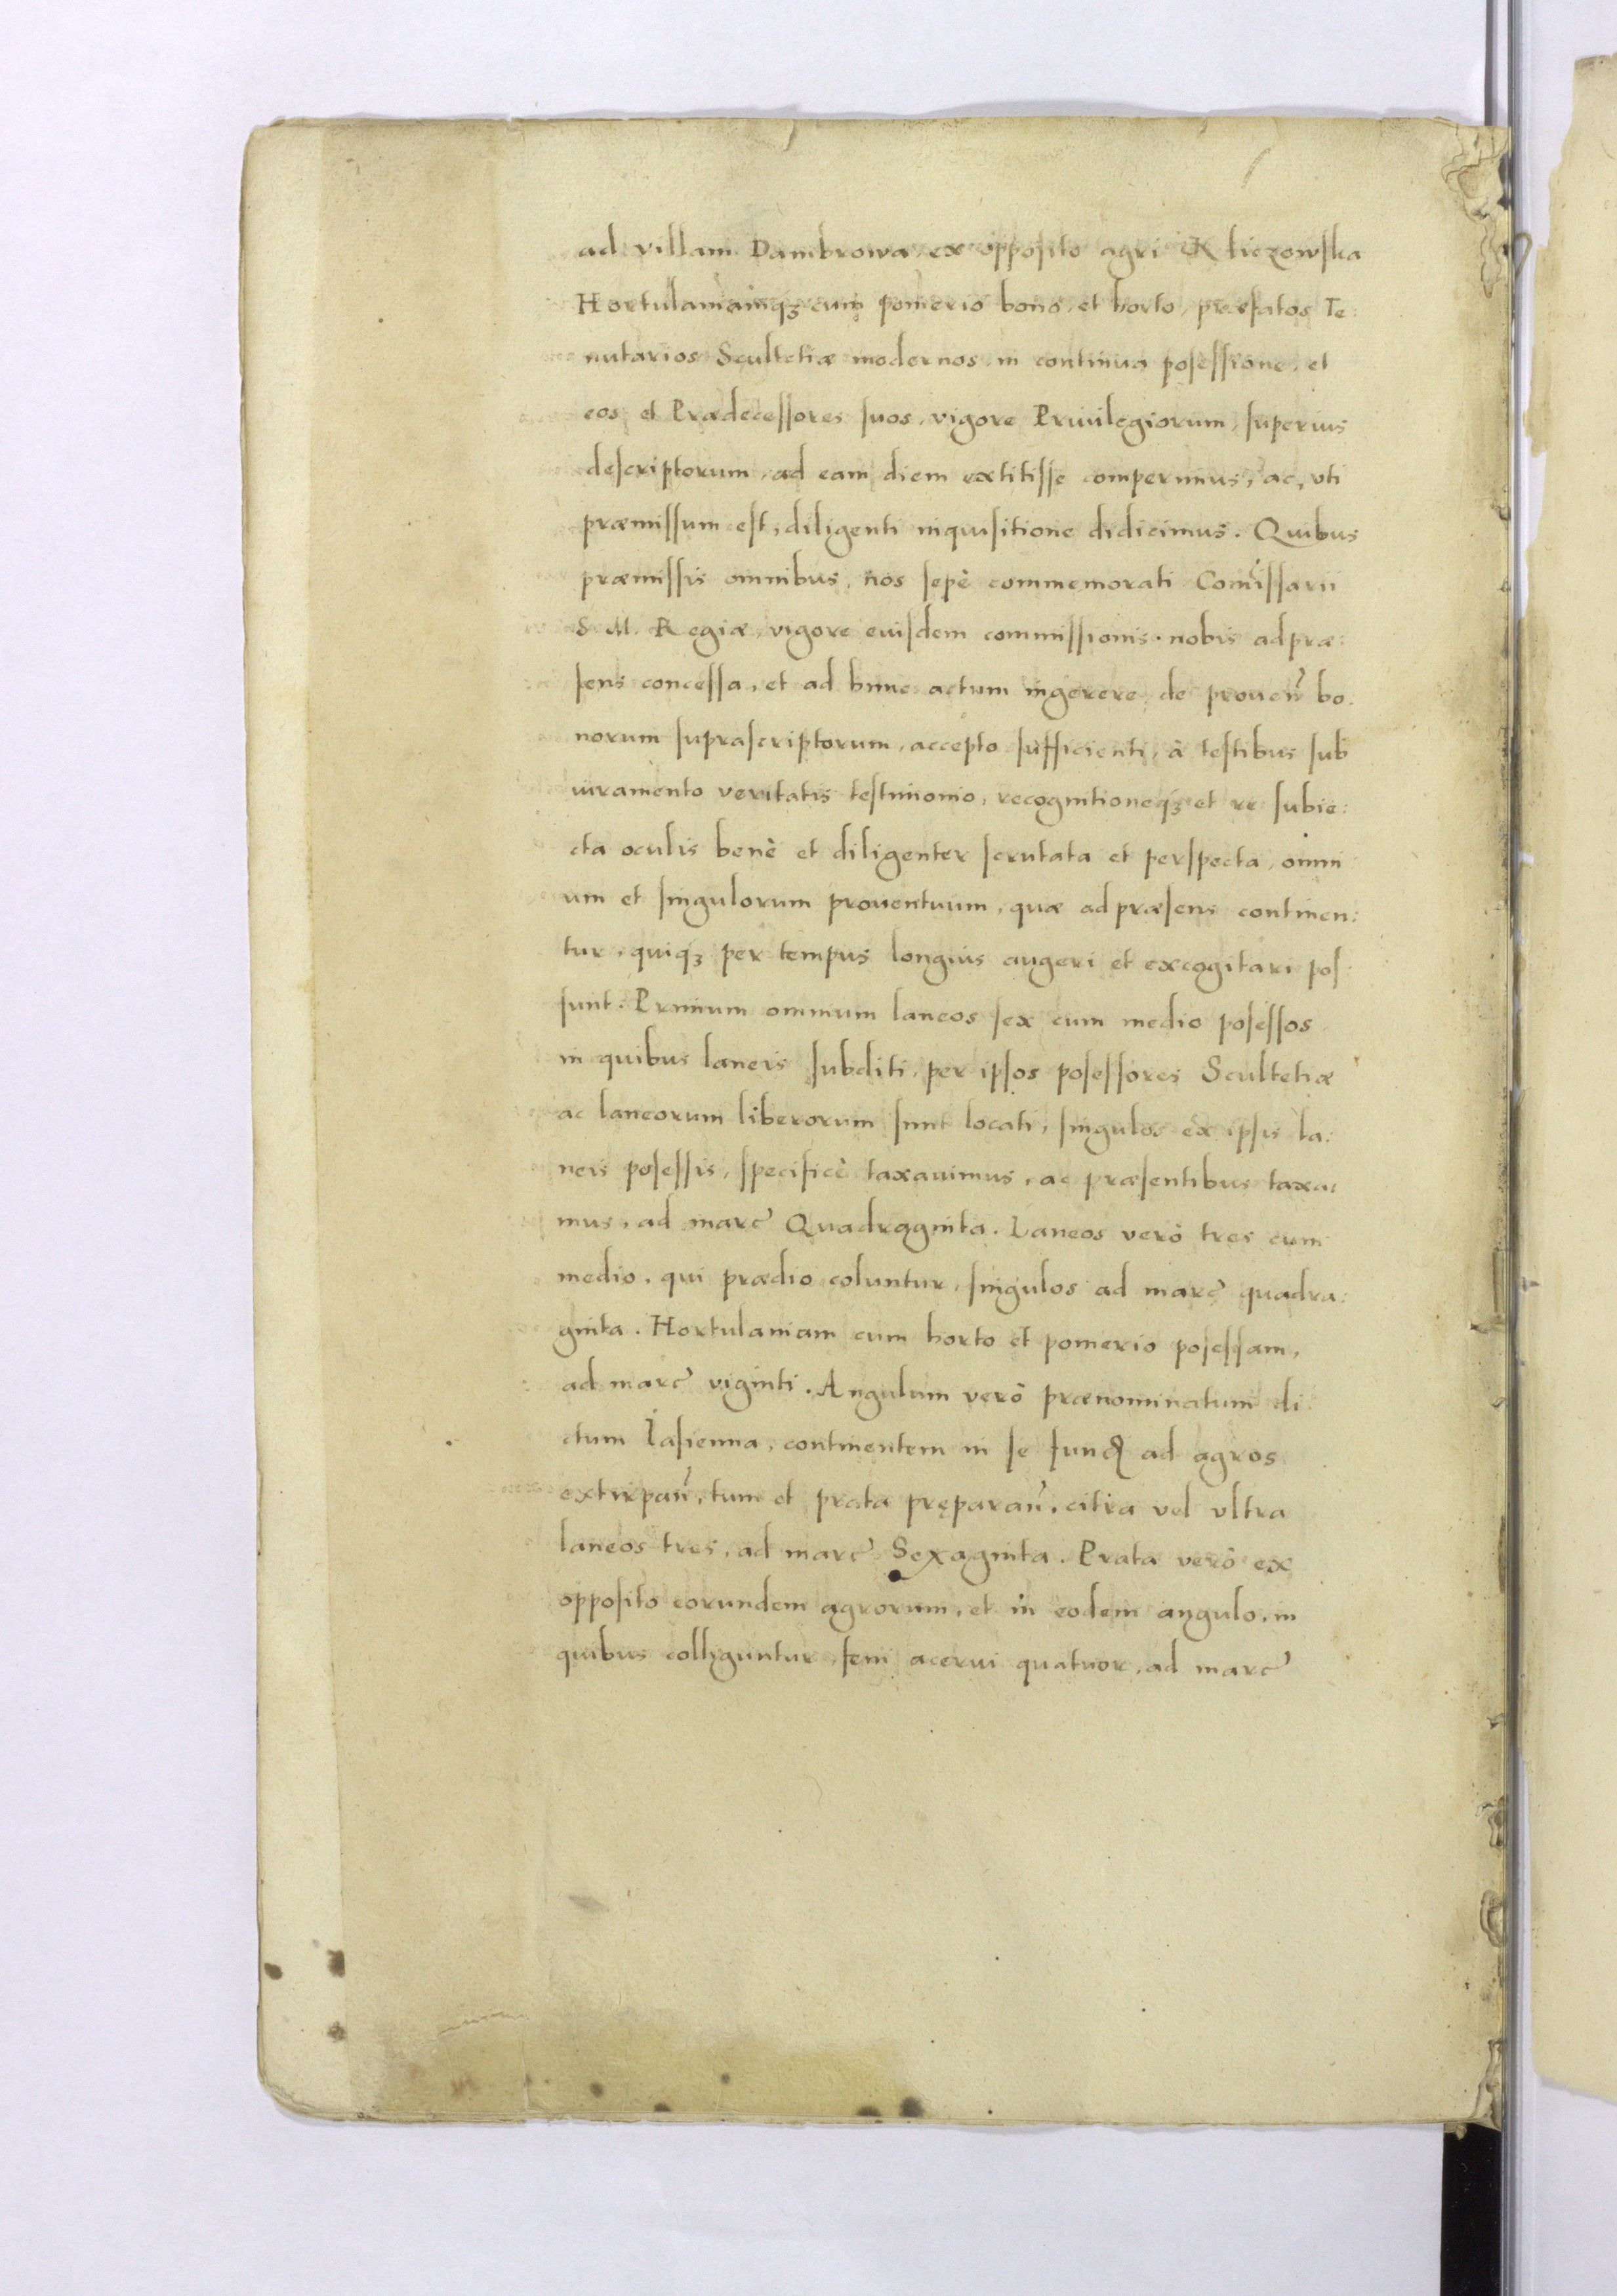 ad villam Dambrowa, ex opposito agri Kliczowska
Hortulaniamqꝫ cum pomerio bono, et horto, præfatos Te:
nutarios Scultetiæ modernos, in continua poſeſſione, et
eos et Prædeceſſores ſuos, vigore Priuilegiorum, ſuperius
deſcriptorum, ad eam diem extitiſſe comperimus, ac, vti
præmiſſum eſt, diligenti inquiſitione didicimus. Quibus
præmiſſis omnibus, nos ſepè commemorati Com̄iſſarii
S. M. Regiæ, vigore euiſdem commiſſionis, nobis ad præ:
ſens conceſſa, et ad hunc actum ingerere, de prouen̄ bo:
norum ſupraſcriptorum, accepto ſufficienti, à teſtibus ſub
iuramento veritatis teſtimonio, recognitioneqꝫ et re ſubie:
cta oculis benè et diligenter ſcrutata et perſpecta, omni
um et ſingulorum prouentuum, quæ ad præſens continen:
tur, quiqꝫ per tempus longius augeri et excogitari poſ
ſunt. Primum omnium laneos ſex cum medio poſeſſos
in quibus laneis ſubditi, per ipſos poſeſſores Scultetiæ
ac laneorum liberorum ſunt locati, ſingulos ex ipſis la:
neis poſeſſis, ſpecificè taxauimus, ac præſentibus taxa:
mus, ad marc̃ Quadraginta. Laneos verò tres cum
medio, qui prædio coluntur, ſingulos ad marc̃ quadra:
ginta. Hortulaniam cum horto et pomerio poſeſſam,
ad marc̃ viginti. Angulum verò prænominatum di
ctum Iaſienna, continentem in ſe fund ad agros
extirpan̄, tum et prata pręparan̄, citra vel vltra
laneos tres, ad marc̃ Sexaginta. Prata verò ex
oppoſito eorundem agrorum, et in eodem angulo, in
quibus colliguntur, feni acerui quatuor, ad marc̃